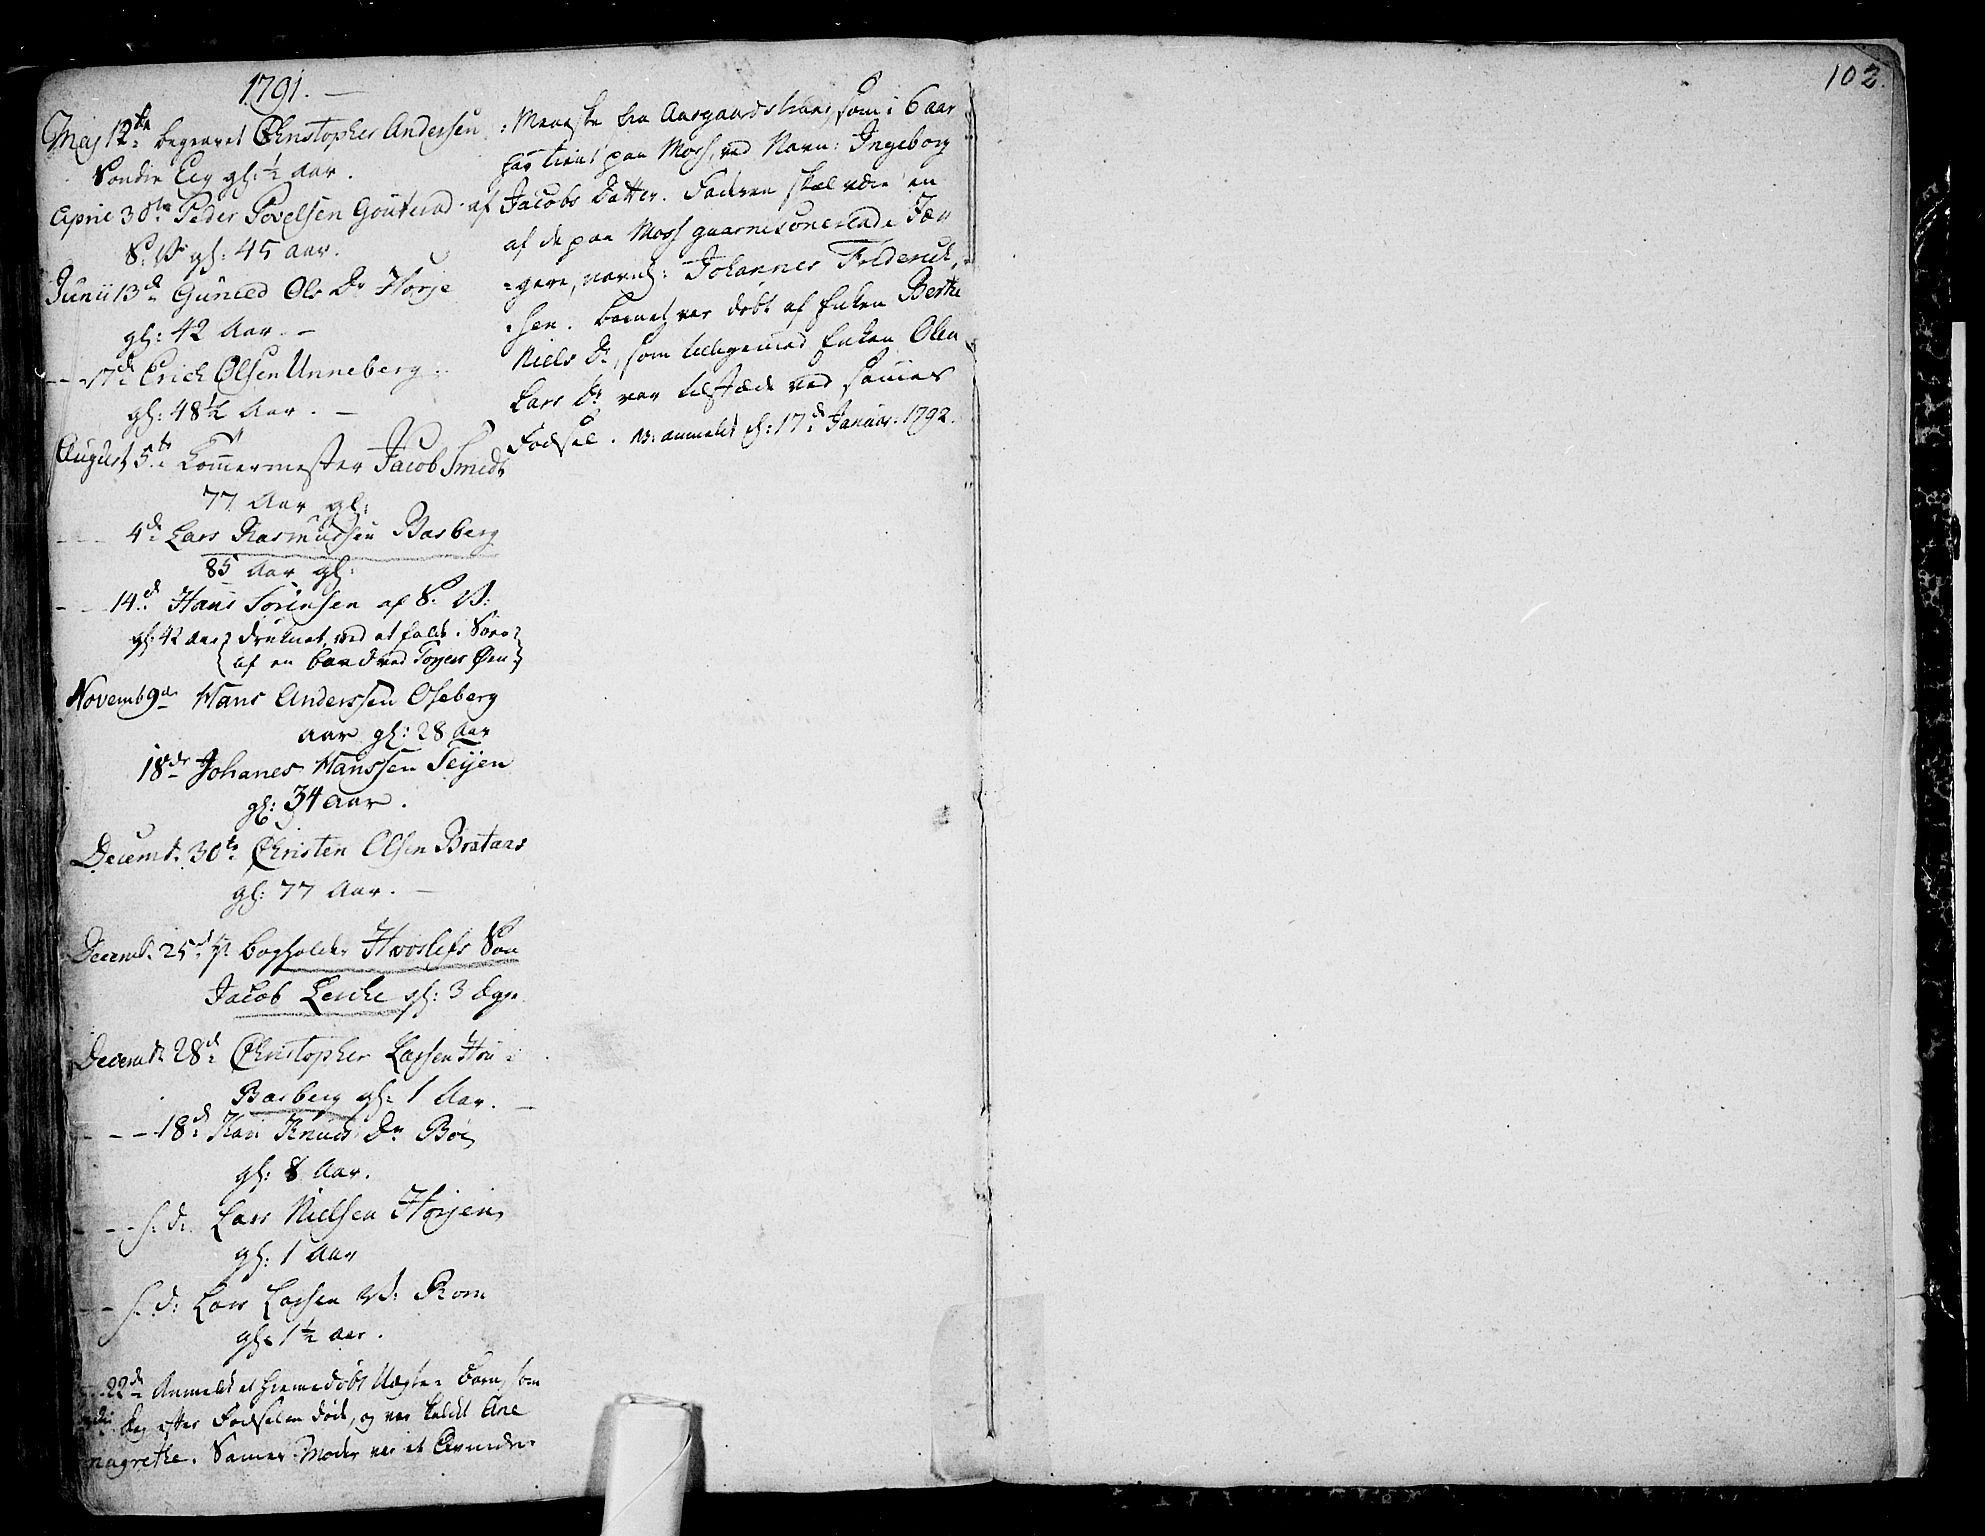 1791.
Maj 12te begravet Christopher Andersen
Søndre Eeg gl: ½ Aar.
April 30te Peder Povelsen Gouterød af
S. V. gl: 45 Aar.
Junii 13d Gunild Ols Dr Horje
gl: 42 Aar. —
--- 17d Erich Olsen Unneberg.
gl: 48½ Aar. —
August 5te Tømmermester Jacob Smidt
77 Aar gl:
--- 4d Lars Rasmussen Basberg
85 Aar gl:
--- 14d Hans Sørensen af S. V:
gl: 42 Aar druknet, ved at falde i Søen
af en baad ved Øen
Novemb 9de Hans Anderssen Oseberg
Aar gl: 28 Aar
18de Johanes Hanssen Teijen
gl: 34 Aar.
Decembr 30te Christen Olsen Brataas
gl: 77 Aar. —
Decembr 25d bogholder Havslefs Søn
Jacob Lerche gl: 3 dage
Decembr 28d Christopher Larsen
Basberg gl: 1 Aar. —
--- 18d Kari Knuds Dr Bøe
gl: 8 Aar.
--- s. d. Lars Nielsen Horjen
gl: 1 Aar
--- s. d: Lars Larsen V: Rom
gl: 1½ Aar.
22de Anmeldt et hiemedøbt Uægte Barn, som
dag efter Fødselen døde, og var kaldet Ane
magrethe. Sammes Moder var et
Meneske fra Aasgaardstrand, som i 6 aar
har tient paa Moss, ved Navn: Ingeborg
Jacobs Datter. Faderen skal være en
af de paa Moss guarnisonerede Jæ-
gere, navnl: Johannes Frederich-
sen. Barnet var døbt af Enken Berthe
Niels Dr, som tilligemed Enken Olea
Lars Dr var tilstæde ved sammes
Fødsel. NB: anmeldt d: 17d Januar. 1792.
102.